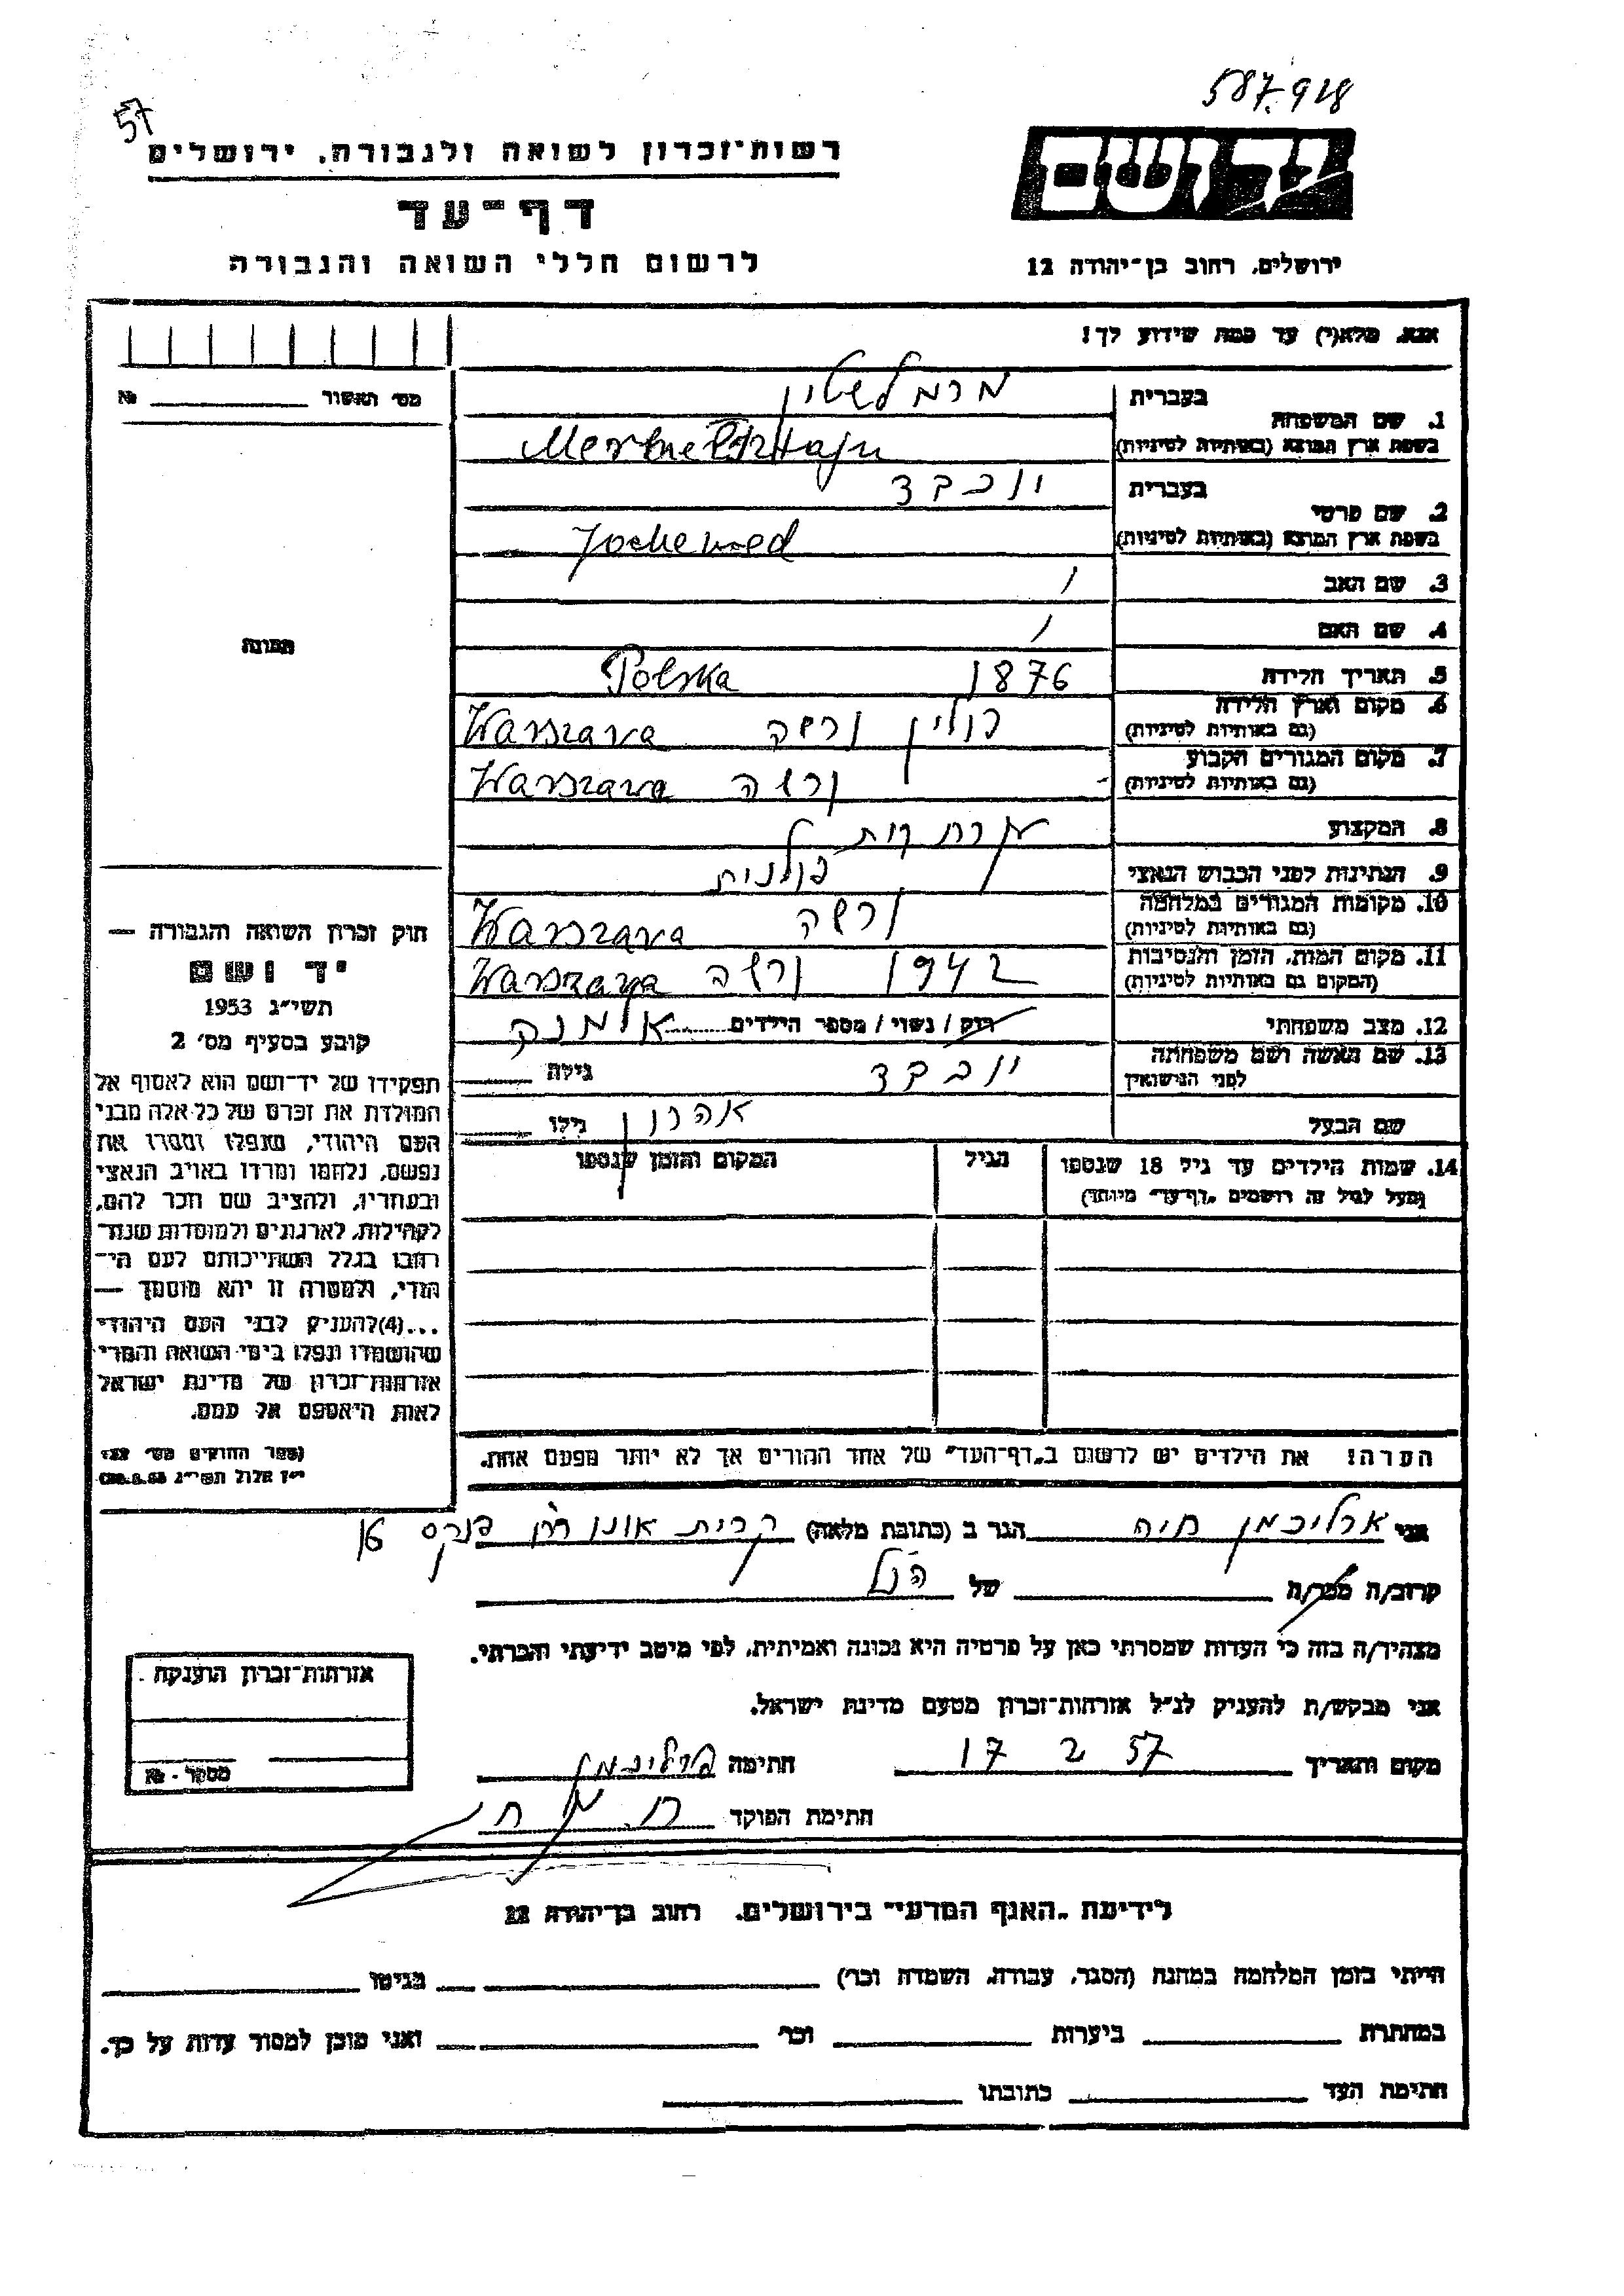 587.918
57
רשות־זכרון לשואה ולגבורה, ירושלים
יד ושם
דף־עד
לרשום חללי השואה והגבורה
ירושלים, רחוב בן־יהודה 12
אנא, מלא(י) עד כמה שידוע לך!
מס׳ תאשור № 
בעברית מרמלשטיין
1. שם המשפחה
בשפת ארץ המוצא (באותיות לטיניות)
בעברית יוכבד
2. שם פרטי
בשפת ארץ המוצא (באותיות לטיניות) Jochewed
3. שם האב /
4. שם האם /
תמונה
5. תאריך הלידה 1876 Polska
6. מקום וארץ הלידה פולין ורשה Warszawa
(גם באותיות לטיניות)
7. מקום המגורים הקבוע ורשה Warszawa
(גם באותיות לטיניות)
8. המקצוע
9. הנתינות לפני הכבוש הנאצי פולנית
10. מקומות המגורים במלחמה ורשה Warszawa
(גם באותיות לטיניות)
11. מקום המות, הזמן והנסיבות 1942 ורשה Warszawa
(המקום גם באותיות לטיניות)
12. מצב משפחתי רווק / נשוי / מספר הילדים אלמנה
13. שם האשה ושם משפחתה יוכבד גילה
לפני הנישואין
שם הבעל אהרון גילו
14. שמות הילדים עד גיל 18 שנספו הגיל המקום והזמן שנספו
(מעל לגיל זה רושמים "דף־עד" מיוחד)
הערה: את הילדים יש לרשום ב"דף־העד" של אחד ההורים אך לא יותר מפעם אחת.
חוק זכרון השואה והגבורה —
יד ושם
תשי״ג 1953
קובע בסעיף מס׳ 2
תפקידו של יד־ושם הוא לאסוף אל
המולדת את זכרם של כל אלה מבני
העם היהודי, שנפלו ומסרו את
נפשם, נלחמו ומרדו באויב הנאצי
ובעוזריו, ולהציב שם וזכר להם,
לקהילות, לארגונים ולמוסדות שנח־
רבו בגלל השתייכותם לעם הי־
הודי, ולמטרה זו יהא מוסמך —
...(4) להעניק לבני העם היהודי
שהושמדו ונפלו בימי השואה והמרי
אזרחות־זכרון של מדינת ישראל
לאות היאספם אל עמם.
(ספר החוקים מס׳ 132
י״ז אלול תשי״ג 28.8.53)
אני חיה הגר ב (כתובת מלאה) קרית אונו רח׳ פנקס
קרוב/ה מכר/ה של הנ״ל
מצהיר/ה בזה כי העדות שמסרתי כאן על פרטיה היא נכונה ואמיתית, לפי מיטב ידיעתי והכרתי.
אני מבקש/ת להעניק לנ״ל אזרחות־זכרון מטעם מדינת ישראל.
מקום ותאריך 17 2 57 חתימה
חתימת הפוקד
אזרחות־זכרון הוענקה
מספר - №
לידיעת "האגף המדעי" בירושלים, רחוב בן־יהודה 12
הייתי בזמן המלחמה במחנה (הסגר, עבודה, השמדה וכו׳) בגיטו
במחתרת ביערות וכו׳ ואני מוכן למסור עדות על כך.
חתימת העד כתובתו